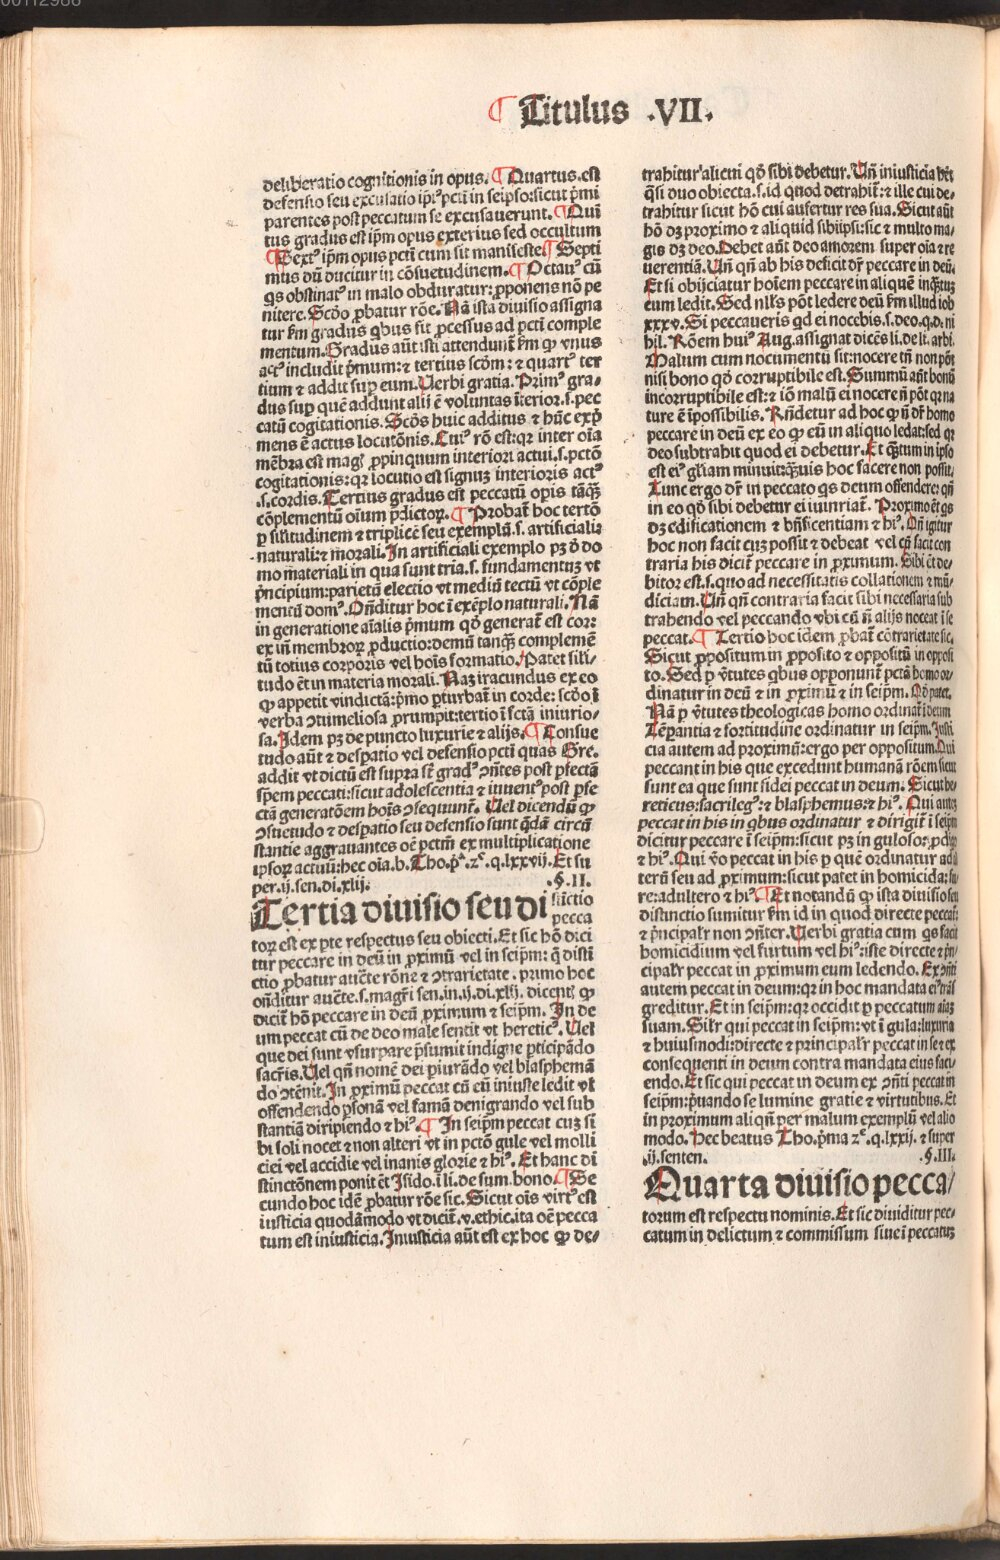 00112988
¶ Titulus .VII.
deliberatio cognitionis in opus. ¶ Quartus.est
defensio seu excusatio ipiꝰ pcti in seipso:sicut p̄mi
parentes post peccatum se excusauerunt. ¶ Qui
tus gradus est ip̄m opus exterius sed occultum
¶ Sextꝰ ip̄m opus pcti cum sit manifeste. ¶ Septi
mus dū ducitur in cōsuetudinem. ¶ Octauꝰ cū
qs obstinatꝰ in malo obduratur: ꝓponens nō pe
nitere. Scd̄o ꝓbatur rōe. Nā ista diuisio assigna
tur ẜm gradus qbus fit ꝓcessus ad pcti comple
mentum. Gradus aūt isti attendunt̄ ẜm ꝙ vnus
actꝰ includit p̄mum: ⁊ tertius scd̄m: ⁊ quartꝰ ter
tium ⁊ addit suꝑ eum. Uerbi gratia. Primꝰ gra⸗
dus suꝑ quē addunt alij ē voluntas īterior.s.pec
catū cogitationis. Scd̄s huic additus ⁊ hūc exp̄
mens ē actus locutōnis. Cuiꝰ rō est: qr inter oīa
mēbra est magꝭ ꝓpinquum interiori actui.s.pctō
cogitationis: qr locutio est signuꝫ interioris actꝰ
.s.cordis. Tertius gradus est peccatū opis tāꝙ̄
cōplementū oīum p̄dictoꝝ. ¶ Probat̄ hoc tertō
ꝑ silitudinem ⁊ triplicē seu exemplū.s.artificialis
naturali: ⁊ morali. In artificiali exemplo pꝫ ō do
mo materiali in qua sunt tria.s.fundamentuꝫ vt
p̄ncipium: parietū electio vt mediū tectū vt cōple
mentū domꝰ. Oñditur hoc ī exēplo naturali. Nā
in generatione aīalis p̄mum qd̄ generat̄ est cor:
ex iñ membroꝝ ꝓductio: demū tanꝙ̄ complemē
tū totius corporis vel hoīs formatio. Patet sili⸗
tudo ēt in materia morali. Naꝫ iracundus ex eo
ꝙ appetit vindictā: p̄mo ꝑturbat̄ in corde: scd̄o ī
verba ꝯtumeliosa ꝓrumpit: tertio ī fctā iniurio⸗
sa. Idem pꝫ de puncto luxurie ⁊ alijs. ¶ Consue
tudo aūt ⁊ despatio vel defensio pcti quas Gre.
addit vt dictū est supra sūt gradꝰ ꝯñtes post ꝑfectā
spēm peccati: sicut adolescentia ⁊ iuuentꝰ post ꝑfe
ctā generatōem hoīs ꝯsequunt̄. Uel dicendū ꝙ
ꝯsuetudo ⁊ despatio seu defensio sunt q̄dā circū
stantie aggrauantes oē pctm̄ ex multiplicatione
ipsoꝝ actuū: hec oīa.b.Tho.p̄ª.zͤ.q.lxxvij. Et su
per.ij.sen.di.xlij. .§.II.
Tertia diuisio seu di stinctio
pecca
toꝝ est ex ꝑte respectus seu obiecti. Et sic hō dici
tur peccare in deū in ꝓximū vel in seipm̄: q̄ disti
ctio ꝓbatur aucte rōne ⁊ ꝯtrarietate. primo hoc
oñditur aucte.s.magr̄i sen.in.ij.di.xlij. dicentꝭ ꝙ
dicit̄ hō peccare in deū ꝓximum ⁊ seipm̄. In de
um peccat cū de deo male sentit vt hereticꝰ. Uel
que dei sunt vsurpare p̄sumit indigne ꝑticipādo
sacr̄is. Uel qn̄ nomē dei piurādo vel blasphemā
do ꝯtēnit. In ꝓximū peccat cū eū iniuste ledit vꝉ
offendendo ꝑsonā vel famā denigrando vel sub
stantiā diripiendo ⁊ hiꝰ. ¶ In seipm̄ peccat cuꝫ si
bi soli nocet ⁊ non alteri vt in pctō gule vel molli
ciei vel accidie vel inanis glorie ⁊ hiꝰ. Et hanc di
stinctōnem ponit ēt Isido.ī li.de sum.bono. ¶ Se
cundo hoc idē ꝓbatur rōe sic. Sicut oīs virtꝰ est
iusticia quodāmodo vt dicit̄.v.ethic.ita oē pecca
tum est iniusticia. Iniusticia aūt est ex hoc ꝙ de⸗
trahitur alicui qd̄ sibi debetur. Uñ iniusticia hēt
q̄si duo obiecta.s.id quod detrahit̄: ⁊ ille cui de⸗
trahitur sicut hō cui aufertur res sua. Sicut aūt
hō dꝫ ꝓximo ⁊ aliquid sibiipsi: sic ⁊ multo ma⸗
gis dꝫ deo. Debet aūt deo amorem super oīa ⁊ re
uerentiā. Uñ qn̄ ab his deficit dr̄ peccare in deū.
Et si obijciatur hoīem peccare in aliquē inq̄ꝫtuꝫ
eum ledit. Sed nlls pōt ledere deū ẜm illud iob
xxxv. Si peccaueris qd ei nocebis.s.deo.q.d.ni
hil. Rōem huiꝰ Aug.assignat dicēs li.de li.arbi.
Malum cum nocumentū sit: nocere tn̄ non pōt
nisi bono qd̄ corruptibile est. Summū aūt bonū
incorruptibile est: ⁊ iō malū ei nocere n̄ pōt qr na
ture ē īpossibilis. Rñdetur ad hoc ꝙ n̄ dr̄ homo
peccare in deū ex eo ꝙ eū in aliquo ledat: sed qr
deo subtrahit quod ei debetur. Et q̄ꝫtum in ipso
est eiꝰ gl̄iam minuit: q̄ꝫuis hoc facere non possit.
Tunc ergo dr̄ in peccato qs deum offendere: qn̄
in eo qd̄ sibi debetur ei iniuriat̄. Proximo ēt qs
dꝫ edificationem ⁊ bn̄ficentiam ⁊ hiꝰ. Qn̄ igitur
hoc non facit cuꝫ possit ⁊ debeat vel eꝙ̄ facit con
traria his dicit̄ peccare in ꝓximum. Sibi ēt de⸗
bitor est.s.quo ad necessitatis collationem ⁊ mū⸗
diciam. Uñ qn̄ contraria facit sibi necessaria sub
trahendo vel peccando vbi cū n̄ alijs noceat ī se
peccat. ¶ Tertio hoc idem ꝓbat̄ cōtrarietate sic.
Sicut ꝓpositum in ꝓposito ⁊ oppositū in opposi
to. Sed ꝑ v̄tutes qbus opponunt̄ pctā homo or⸗
dinatur in deū ⁊ in ꝓximū ⁊ in seipm̄. Qd̄ patet.
Nā ꝑ v̄tutes theologicas homo ordinat̄ ī deum
Tēꝑantia ⁊ fortitudine ordinatur in seipm̄. Justi
cia autem ad proximū: ergo per oppositum. Qui
peccant in his que excedunt humanā rōem sicut
sunt ea que sunt fidei peccat in deum. Sicut he⸗
reticus: sacrilegꝰ: ⁊ blasphemus: ⁊ hiꝰ. Qui auteꝫ
peccat in his in qbus ordinatur ⁊ dirigit̄ ī seipm̄
dicitur peccare ī seipm̄: sicut pꝫ in guloso: ꝓdigo
⁊ hiꝰ. Qui v̄o peccat in his ꝑ quē ordinatur ad al
terū seu ad ꝓximum: sicut patet in homicida: fu
re: adultero ⁊ hiꝰ. ¶ Et notandū ꝙ ista diuisio seu
distinctio sumitur ẜm id in quod directe peccat̄:
⁊ p̄ncipalr̄ non ꝯñter. Uerbi gratia cum qs facit
homicidium vel furtum vel hiꝰ: iste directe ⁊ p̄n⸗
cipalr̄ peccat in ꝓximum eum ledendo. Ex ꝯñti
autem peccat in deum: qr in hoc mandata eiꝰ trāf
greditur. Et in seipm̄: qr occidit ꝑ peccatum aīaꝫ
suam. Silr̄ qui peccat in seipm̄: vt ī gula: luxuria
⁊ huiusmodi: directe ⁊ principalr̄ peccat in se ⁊ ex
consequenti in deum contra mandata eius faci⸗
endo. Et sic qui peccat in deum ex ꝯñti peccat in
seipm̄: p̄uando se lumine gratie ⁊ virtutibus. Et
in proximum aliqn̄ per malum exemplū vel alio
modo. Hec beatus Tho.p̄ma zͤ.q.lxxij. ⁊ super
.ij.senten. .§.III.
Quarta diuisio pecca⸗
torum est respectu nominis. Et sic diuiditur pec⸗
catum in delictum ⁊ commissum siue ī peccatuꝫ